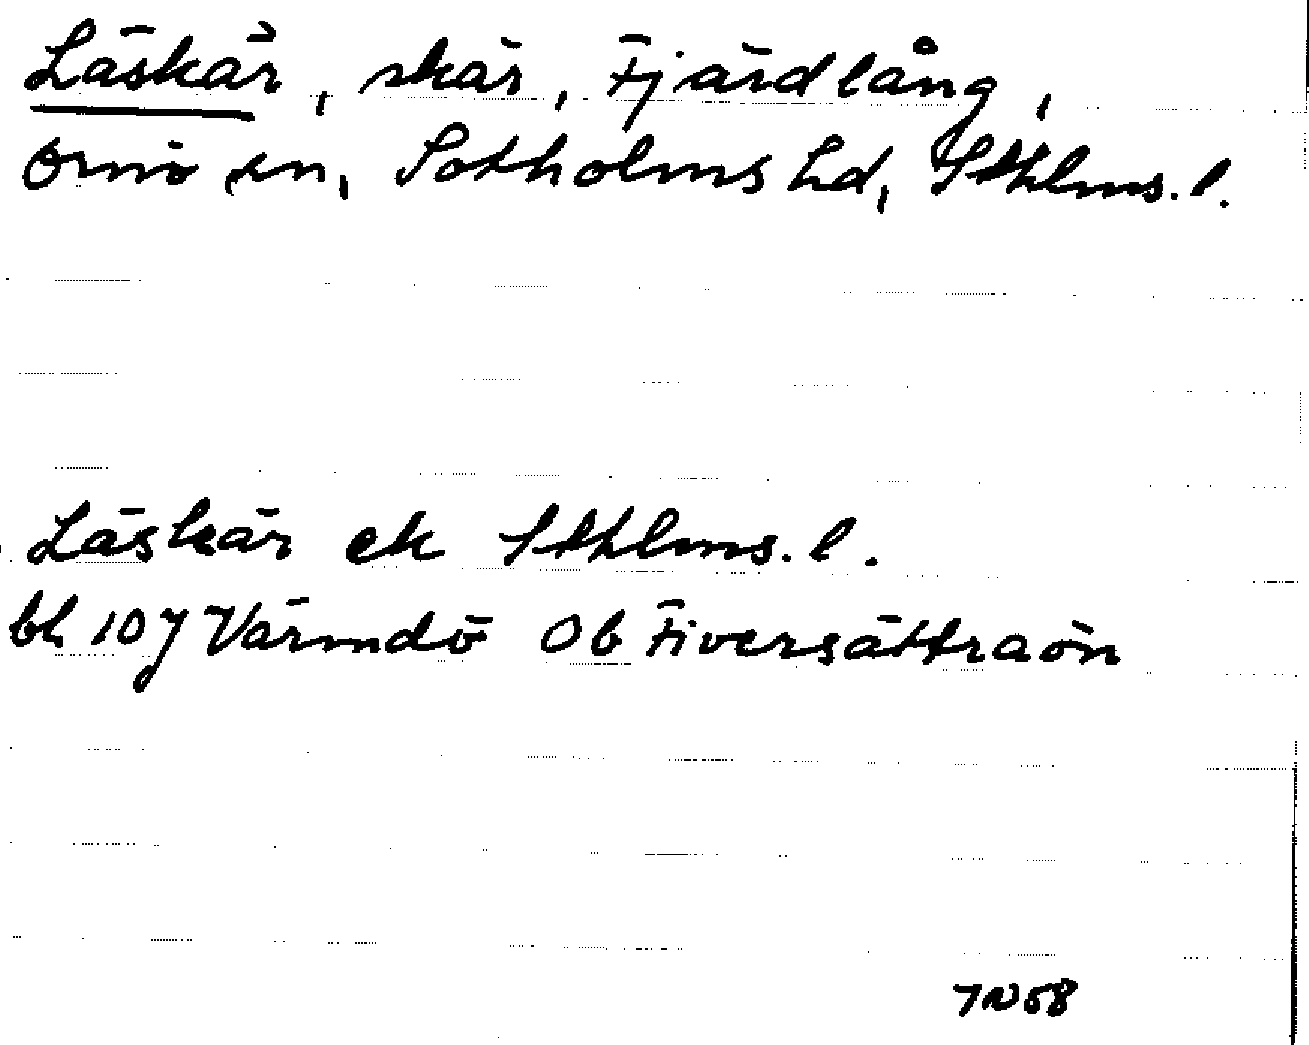 Läskär, skär, Fjärdlång,
Ornö sn, Sotholms hd, Sthlms. l.
Läskär ek Sthlms. l.
bl. 10J Värmdö Ob Fiversättraön
7N68